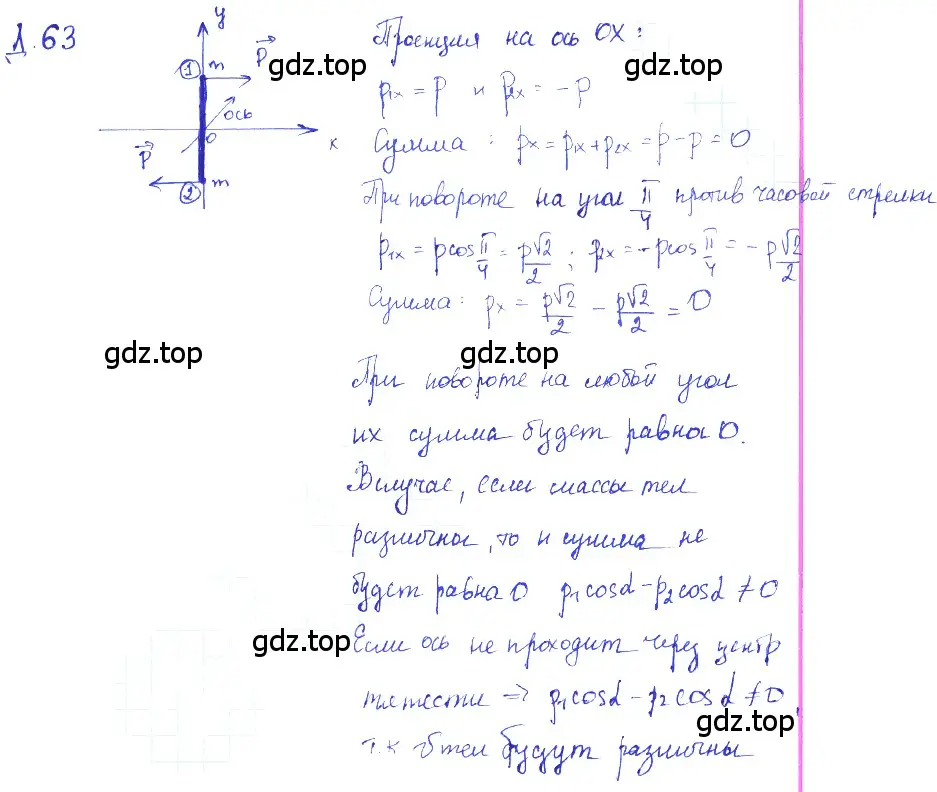 Д.63
y
P⃗
① m
ось
0
x
P⃗
② m
Проекция на ось OX:
p₁ₓ = p и p₂ₓ = -p
Сумма: pₓ = p₁ₓ + p₂ₓ = p - p = 0
При повороте на угол π/4 против часовой стрелки
p₁ₓ = p cos π/4 = p√2/2; p₂ₓ = -p cos π/4 = -p√2/2
Сумма: pₓ = p√2/2 - p√2/2 = 0
При повороте на любой угол
их сумма будет равна 0.
В случае, если массы тел
различны, то и сумма не
будет равна 0 p₁cosα - p₂cosα ≠ 0
Если ось не проходит через центр
тяжести ⇒ p₁cosα - p₂cosα ≠ 0,
т.к υ тел будут различны
gdz.top
gdz.top
gdz.top
gdz.top
gdz.top
gdz.top